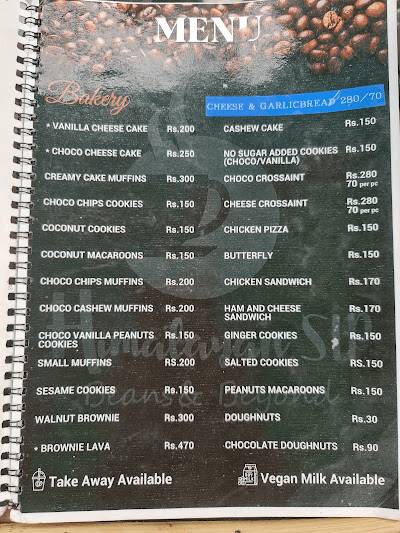 MENU
Bakery
CHEESE & GARLICBREAD 280/70
* VANILLA CHEESE CAKE Rs.200
* CHOCO CHEESE CAKE Rs.250
CREAMY CAKE MUFFINS Rs.300
CHOCO CHIPS COOKIES Rs.150
COCONUT COOKIES Rs.150
COCONUT MACAROONS Rs.150
CHOCO CHIPS MUFFINS Rs.200
CHOCO CASHEW MUFFINS Rs.200
CHOCO VANILLA PEANUTS Rs.150
COOKIES
SMALL MUFFINS RS.200
SESAME COOKIES Rs.150
WALNUT BROWNIE Rs.300
* BROWNIE LAVA Rs.470
CASHEW CAKE Rs.150
NO SUGAR ADDED COOKIES Rs.150
(CHOCO/VANILLA)
CHOCO CROSSAINT Rs.280
70 per pc
CHEESE CROSSAINT Rs.280
70 per pc
CHICKEN PIZZA Rs.150
BUTTERFLY Rs.150
CHICKEN SANDWICH Rs.170
HAM AND CHEESE Rs.170
SANDWICH
GINGER COOKIES Rs.150
SALTED COOKIES RS.150
PEANUTS MACAROONS Rs.150
DOUGHNUTS Rs.30
CHOCOLATE DOUGHNUTS Rs.90
Take Away Available
Vegan Milk Available
Beans & Beyond